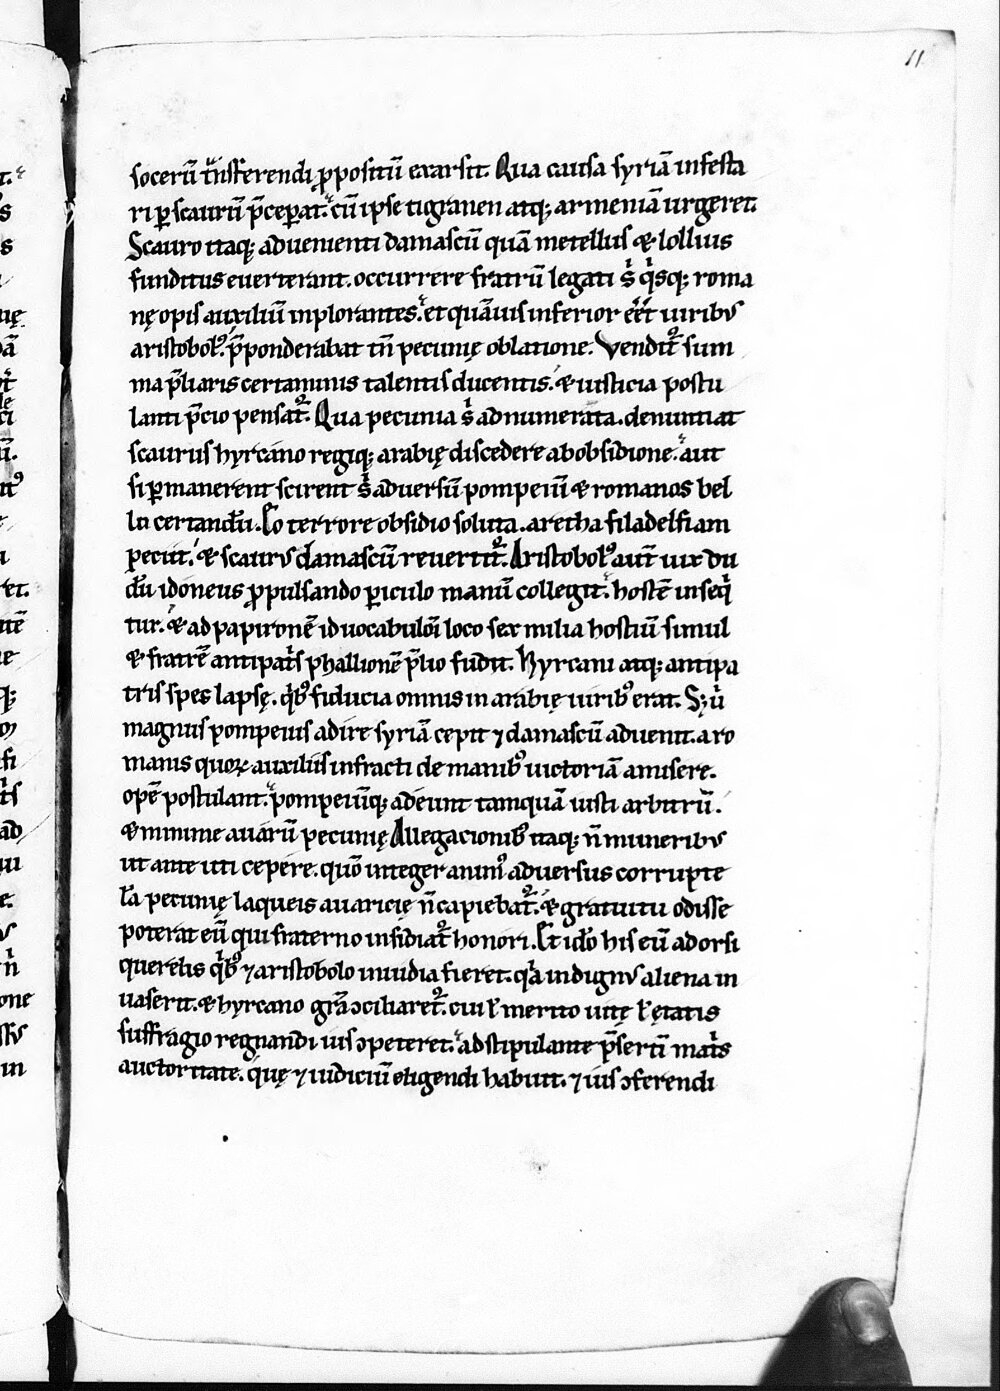 11
socerū t̄nsferendi ꝓpositū exarsit. Qua causa syriā infesta
ri ꝑ scaurū p̄ceperat. cū ipse tigranen atq; armeniā urgeret.
Scauro itaq; advenienti damascū quā metellus & lollius
funditus everterant. occurrere fratrū legati s; q̇sq; roma
nę opis auxiliū inplorantes. et quāvis inferior eēt viribus
aristobolꝰ. p̄ponderabat tn̄ pecunię oblatione. Venditꝰ sum
ma p̄liaris certaminis talentis ducentis. & iusticia postu
lanti p̄cio pensatꝰ. Qua pecunia s; adnumerata. denuntiat
scaurus hyrcano regiq; arabię discedere ab obsidione. aut
si ꝑmanerent scirent s; adversū pompeiū & romanos bel
lo certandū. Eo terrore obsidio soluta. aretha filadelfiam
petiit. & scaurus damascū revertitꝰ. Aristobolꝰ autē vix du
dū idoneus ꝓpulsando ꝑiculo manū collegit. hostē inseq̇
tur. & ad papironē id vocabuloī loco sex milia hostiū simul
& fratrē antipat̄s phallionē p̄lio fudit. Hyrcani atq; antipa
tris spes lapsę. q̇bꝰ fiducia omnis in arabię viribꝰ erat. S; ū
magnus pompeius adire syriā cepit ⁊ damascū advenit. a ro
manis quoꝝ auxiliis infracti de manibꝰ victoriā amisere.
opē postulant. pompeiūq; adeunt tamquā iusti arbitrū.
& minime avarū pecunię Allegacionibꝰ itaq; n̄ muneribus
ut ante uti cepere. quō integer animꝰ adversus corrupte
la pecunię laqueis avaricię n̄ capiebatꝰ. & gratuitu odisse
poterat eū qui fraterno insidiatꝰ honori. Et idō his eū adorsi
querelis q̇bꝰ ⁊ aristobolo invidia fieret. qa indignus aliena in
vaserit. & hyrcano grā ꝯciliaretꝰ. cui ł merito vitę ł ętatis
suffragio regnandi ius ꝯpeteret. adstipulante p̄sertī mat̄s
auctoritate. quę ⁊ iudiciū eligendi habuit. ⁊ ius ꝯferendi